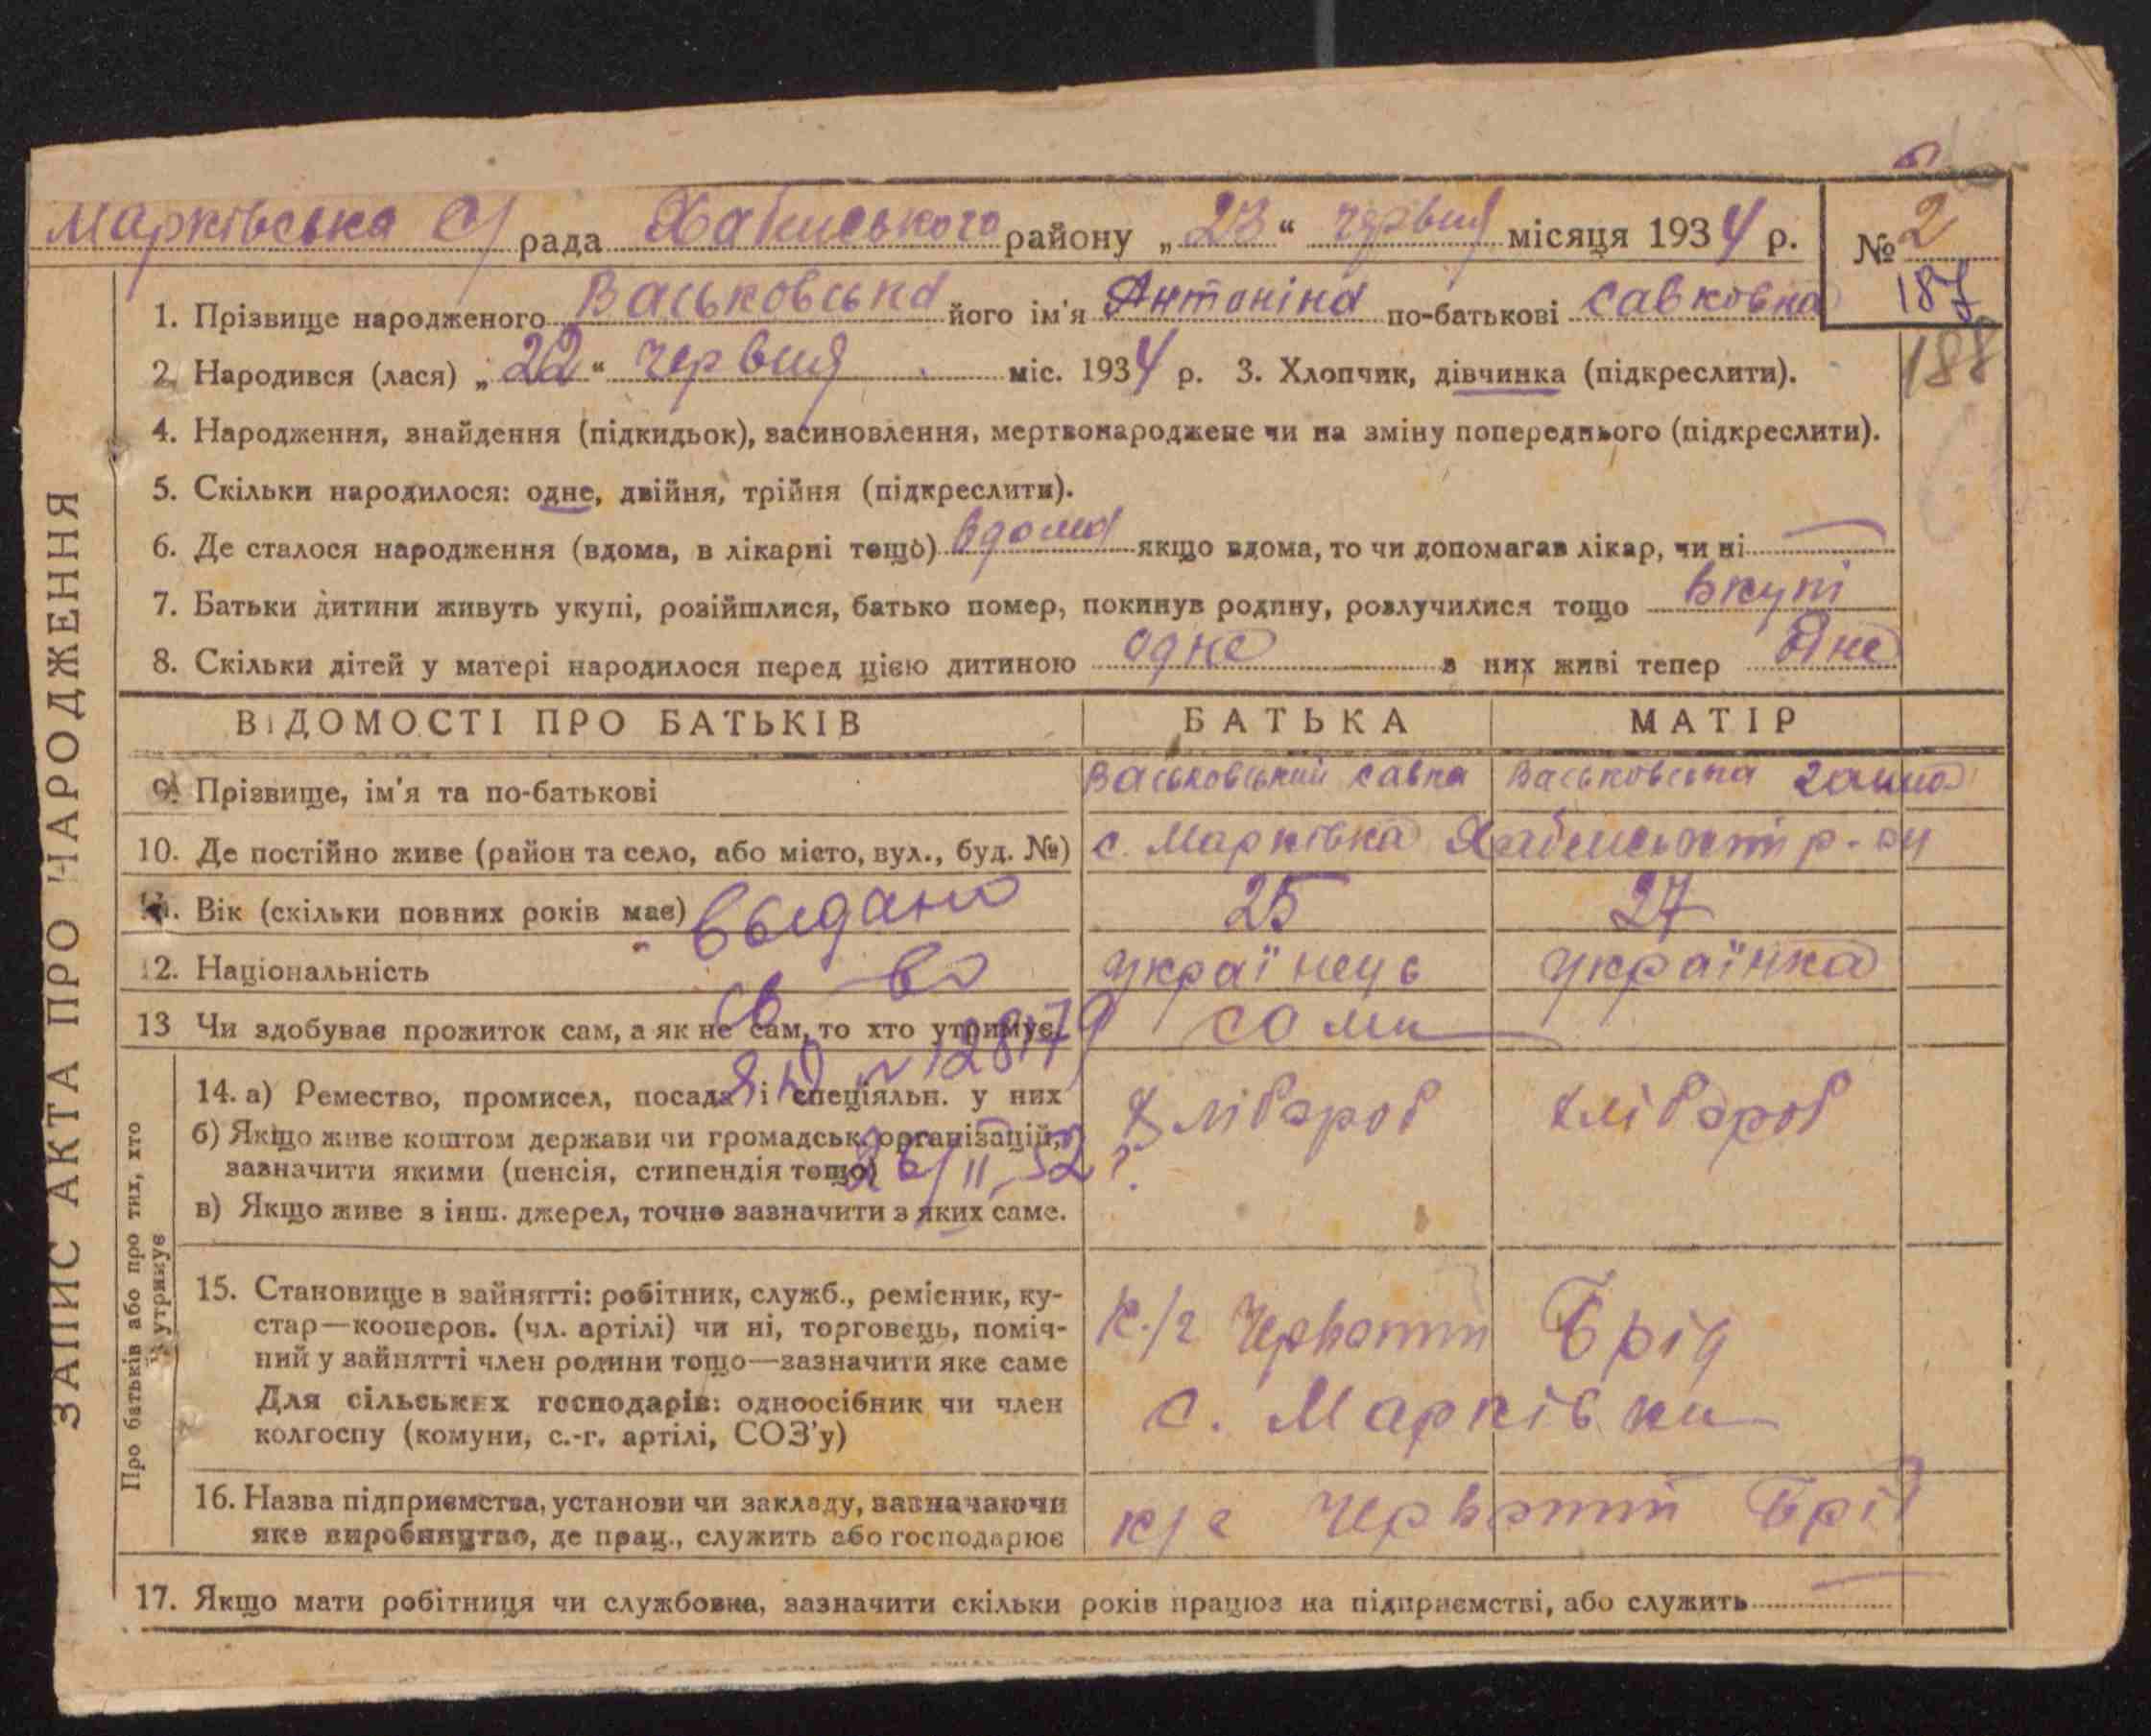 ЗАПИС АКТА ПРО НАРОДЖЕННЯ
Марківська с/рада Хабенського району „23“ червня місяця 1934 р.
№ 2
187
188
1. Прізвище народженого Васьковська його ім'я Антоніна по-батькові Савковна
2. Народився (лася) „22“ червня міс. 1934 р. 3. Хлопчик, дівчинка (підкреслити).
4. Народження, знайдення (підкидьок), засиновлення, мертвонароджене чи на зміну попереднього (підкреслити).
5. Скільки народилося: одне, двійня, трійня (підкреслити).
6. Де сталося народження (вдома, в лікарні тощо) вдома якщо вдома, то чи допомагав лікар, чи ні —
7. Батьки дитини живуть укупі, розійшлися, батько помер, покинув родину, розлучилися тощо вкупі
8. Скільки дітей у матері народилося перед цією дитиною одне з них живі тепер одне
ВІДОМОСТІ ПРО БАТЬКІВ БАТЬКА МАТІР
9. Прізвище, ім'я та по-батькові Васьковський Савка Васьковська Ганна
10. Де постійно живе (район та село, або місто, вул., буд. №) с. Марківка
11. Вік (скільки повних років має) 25 27
выдано
12. Національність українець українка
св-во
13 Чи здобуває прожиток сам, а як не сам, то хто утримує сами
ЯЮ № 128179
Про батьків або про тих, хто їх утримує
14. а) Ремество, промисел, посада і спеціяльн. у них хлібороб хлібороб
б) Якщо живе коштом держави чи громадськ. організацій,
зазначити якими (пенсія, стипендія тощо)
26/II-52 г.
в) Якщо живе з інш. джерел, точно зазначити з яких саме.
15. Становище в зайнятті: робітник, служб., ремісник, ку-
стар—кооперов. (чл. артілі) чи ні, торговець, поміч-
ний у зайнятті член родини тощо—зазначити яке саме
Для сільських господарів: одноосібник чи член
колгоспу (комуни, с.-г. артілі, СОЗ'у)
к/г Червоний Брід
с. Марківки
16. Назва підприємства, установи чи закладу, зазначаючи
яке виробництво, де прац., служить або господарює
к/г Червоний Брід
17. Якщо мати робітниця чи службовка, зазначити скільки років працює на підприємстві, або служить —